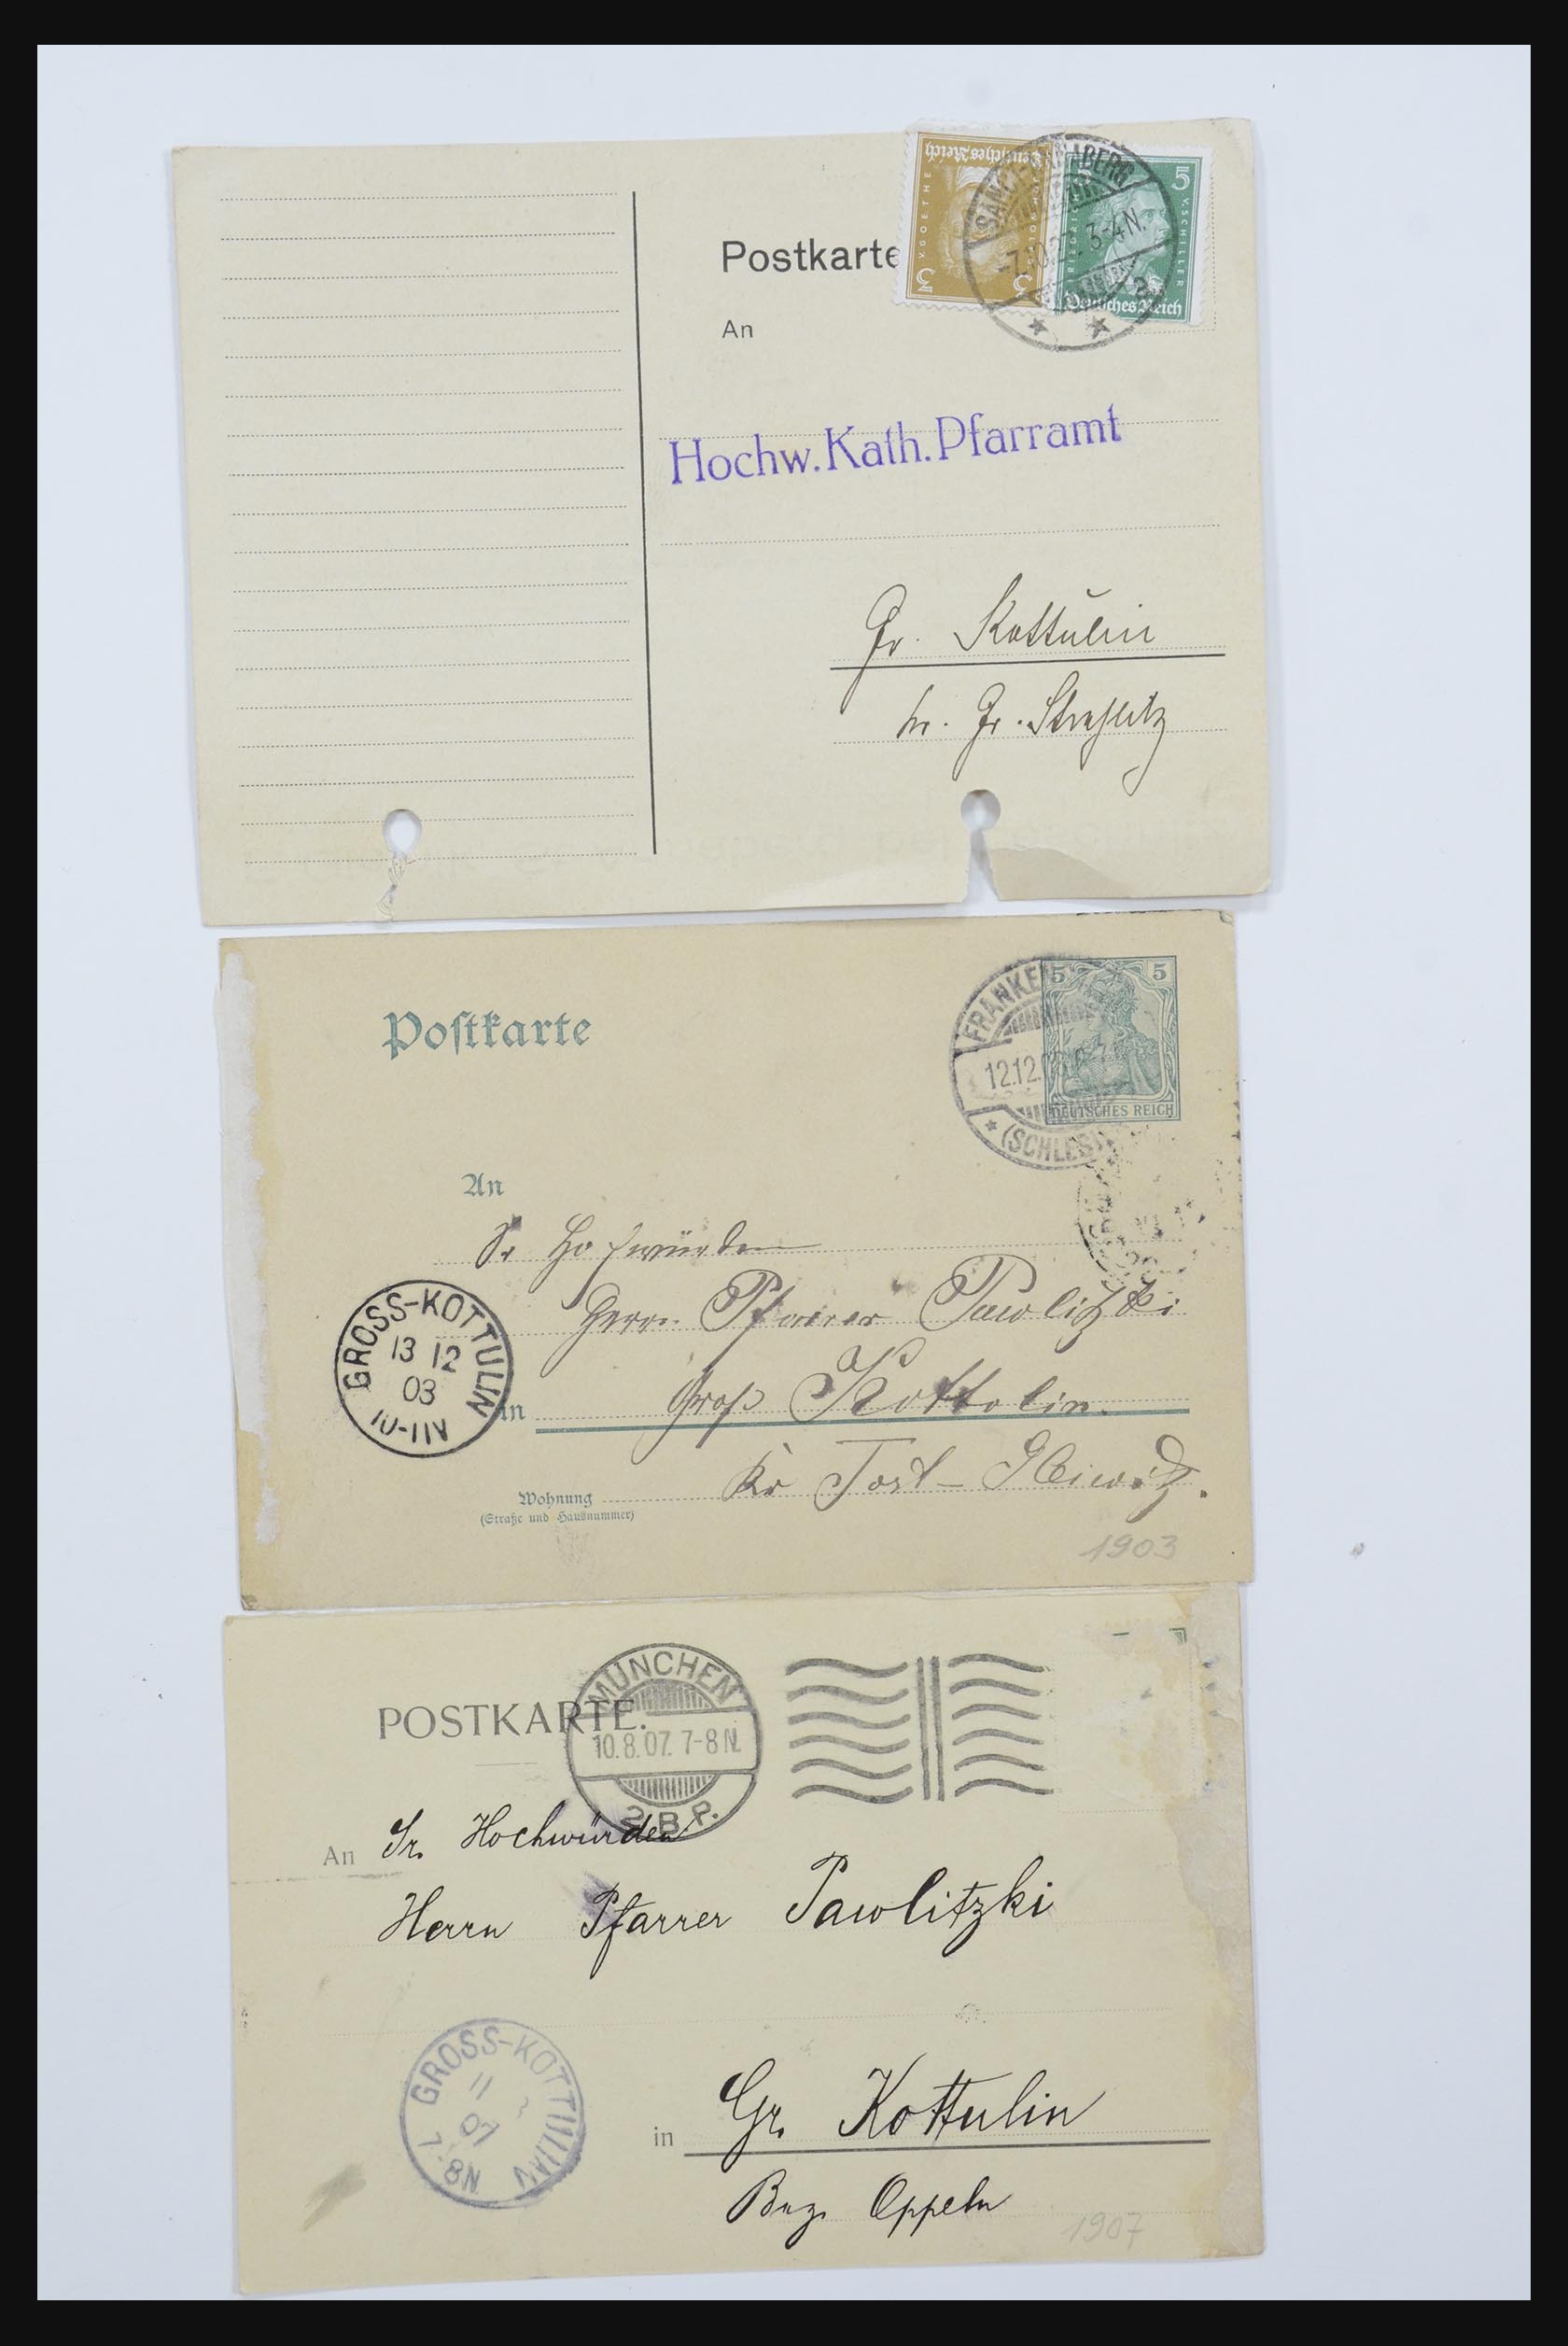 Deutsches Reich
V. GOETHE
3
3
5
5
V. SCHILLER
FRIEDRICH
Deutsches Reich
SANCT ANNABERG
-7.10.27. 3-4 N.
Postkarte
An
Hochw. Kath. Pfarramt
Gr. Kottulin
Gr. Strehlitz
5 5
DEUTSCHES REICH
FRANKEN
12.12.03
(SCHLES)
Postkarte
An
Sr Hochwürden
Herrn Pfarrer Pawlitzki
GROSS-KOTTULIN
13 12
03
10-11N
in Groß Kottolin.
Kr Tost-Gleiwitz.
Wohnung
(Straße und Hausnummer)
1903
MÜNCHEN
10.8.07. 7-8 N.
2.B.P.
POSTKARTE.
An Sr. Hochwürden
Herrn Pfarrer Pawlitzki
GROSS-KOTTULIN
11
07
7-8N
in Gr. Kottulin
Bez. Oppeln
1907